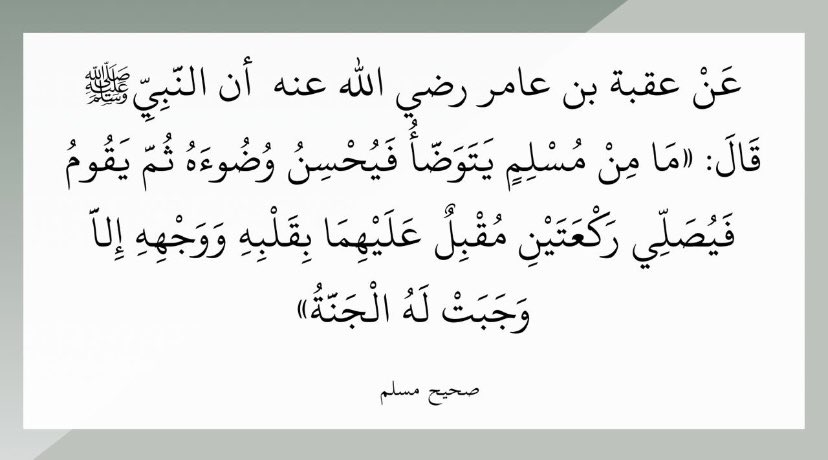 عَنْ عقبة بن عامر رضي الله عنه أن النّبِيِّ ﷺ
قَالَ: «مَا مِنْ مُسْلِمٍ يَتَوَضّأُ فَيُحْسِنُ وُضُوءَهُ ثُمّ يَقُومُ
فَيُصَلِّي رَكْعَتَيْنِ مُقْبِلٌ عَلَيْهِمَا بِقَلْبِهِ وَوَجْهِهِ إِلاّ
وَجَبَتْ لَهُ الْجَنّةُ»
صحيح مسلم